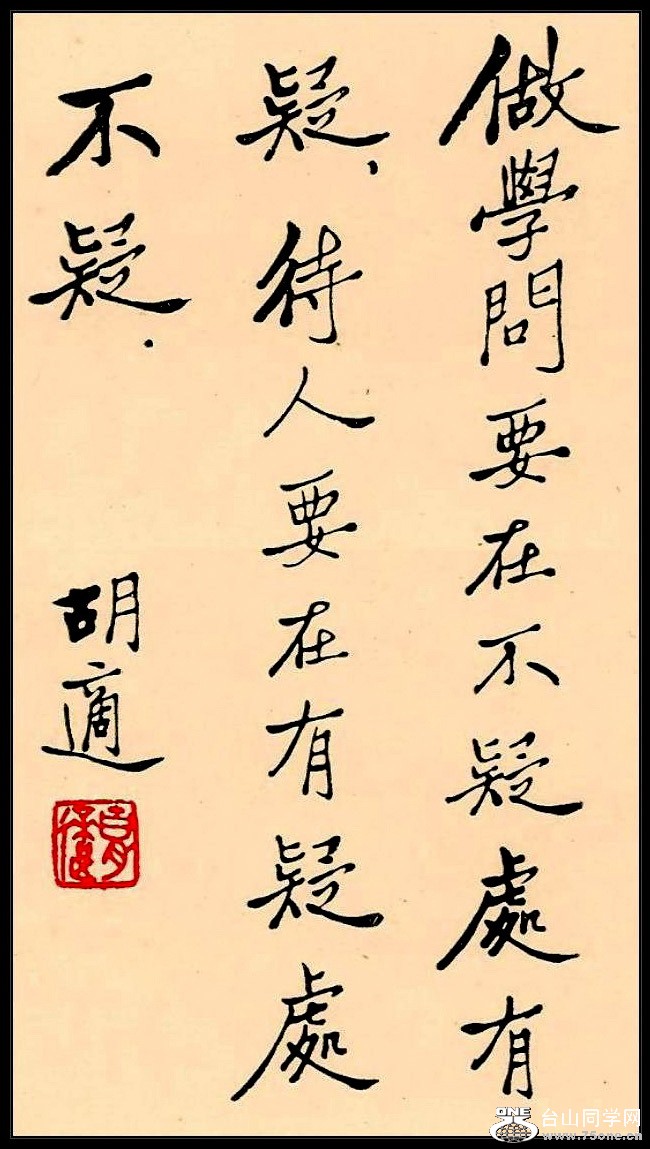 做學問要在不疑處有
疑、待人要在有疑處
不疑.
胡適
ONE
台山同学网
www.75one.cn